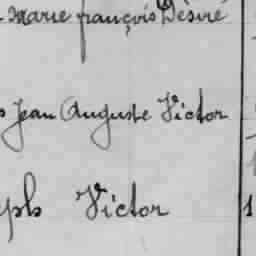 Marie françois Désiré
Jean Auguste Victor
Victor